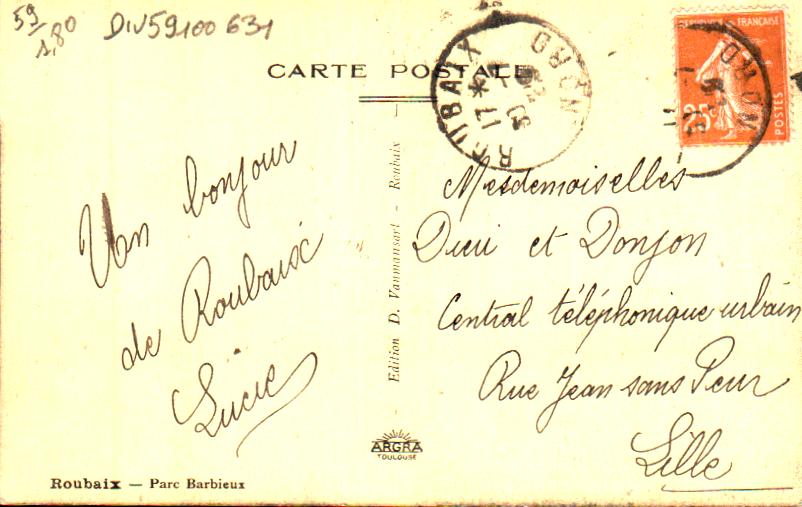 59/1,80
DIV59100 631
CARTE POSTALE
ROUBAIX
NORD
17 *
RÉPUBLIQUE FRANÇAISE
25c
POSTES
NORD
Un bonjour
de Roubaix
Lucie
Edition D. Vanmansart - Roubaix
Mesdemoiselles
Dieu et Donjon
Central téléphonique urbain
Rue Jean sans Peur
Lille
ARGRA
TOULOUSE
Roubaix — Parc Barbieux